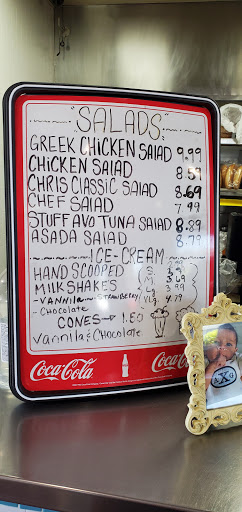 "SALADS"
GREEK CHICKEN SALAD 9.99
CHICKEN SALAD 8.59
CHRIS CLASSIC SALAD 8.69
CHEF SALAD 7.99
STUFF AVO TUNA SALAD 8.89
ASADA SALAD 8.79
ICE-CREAM
HAND SCOOPED
MILKSHAKES
-VANNILA STRAWBERRY
-Chocolate
CONES 1.50
Vannila & Chocolate
Coca-Cola Coca-Cola